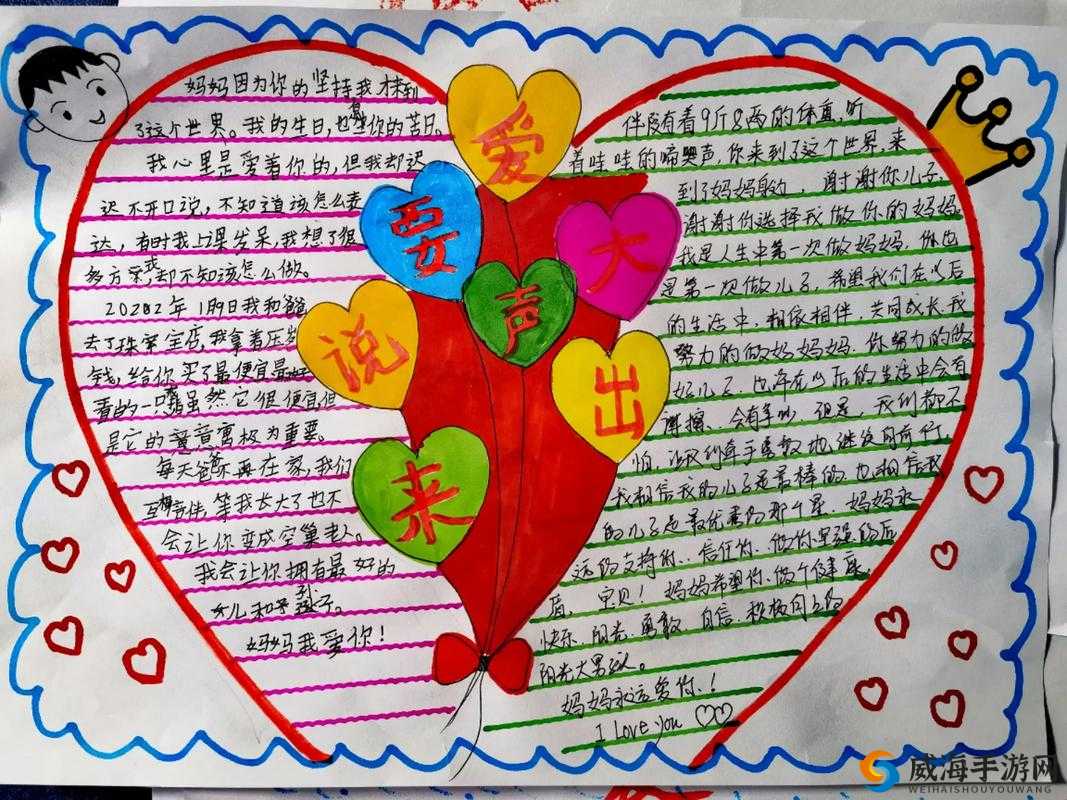 爱要大声说出来
妈妈因为你的坚持我才来到
了这个世界。我的生日,也是你的苦日,
我心里是爱着你的,但我却迟
迟不开口说,不知道该怎么表
达,有时我上课发呆,我想了很
多方案,我却不知该怎么做。
年1月9日我和爸爸
去了珠宝店,我拿着压岁
钱,给你买了最便宜最
看的一口虽然它很便宜但
是它的意寓极为重要。
每天爸不再在家,我们
互相陪伴,等我长大了也不
会让你变成空巢老人。
我会让你拥有最好的
女儿和孩子。
妈妈我爱你!
伴随有着9斤8两的体重,听
着哇哇的啼哭声,你来到了这个世界,来
到了妈妈身边,谢谢你儿子,
谢谢你选择我做你的妈妈。
我是人生中第一次做妈妈,你也
是第一次做儿子,希望我们在以后
的生活中,相依相伴,共同成长,我
努力的做好妈妈,你努力的做
好儿子,也许在以后的生活中会有
摩擦、会有争吵,但是,我们都不
怕,让我们牵手勇敢地继续向前行,
我相信我的儿子是最棒的,也相信我
的儿子是最优秀的那个星,妈妈永
远的支持你、信任你、做你坚强的后
盾,宝贝!妈妈希望你、做个健康、
快乐、阳光、勇敢、自信、积极向上的
阳光大男孩。
妈妈永远爱你!
I love you
威海手游网
WEIHAISHOUYOUWANG